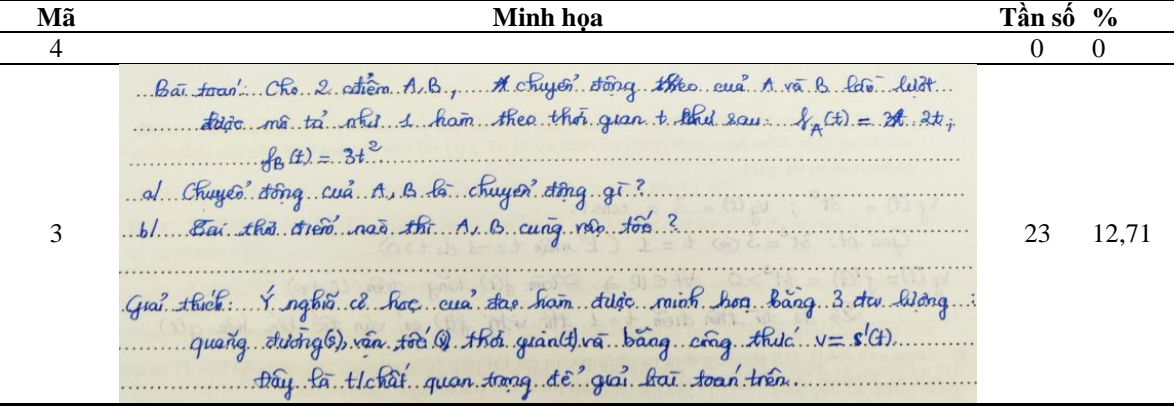 Mã Minh họa Tần số %
4 0 0
Bài toán: Cho 2 điểm A, B, chuyển động theo của A và B lần lượt
được mô tả như 1 hàm theo thời gian t như sau: f_A(t) = 2t;
f_B(t) = 3t²
a/ Chuyển động của A, B là chuyển động gì?
3 b/ Tại thời điểm nào thì A, B cùng vận tốc? 23 12,71
Giải thích: Ý nghĩa cơ học của đạo hàm được minh họa bằng 3 đại lượng:
quãng đường(s), vận tốc(v), thời gian(t) và bằng công thức v = s'(t).
Đây là t/chất quan trọng để giải bài toán trên.